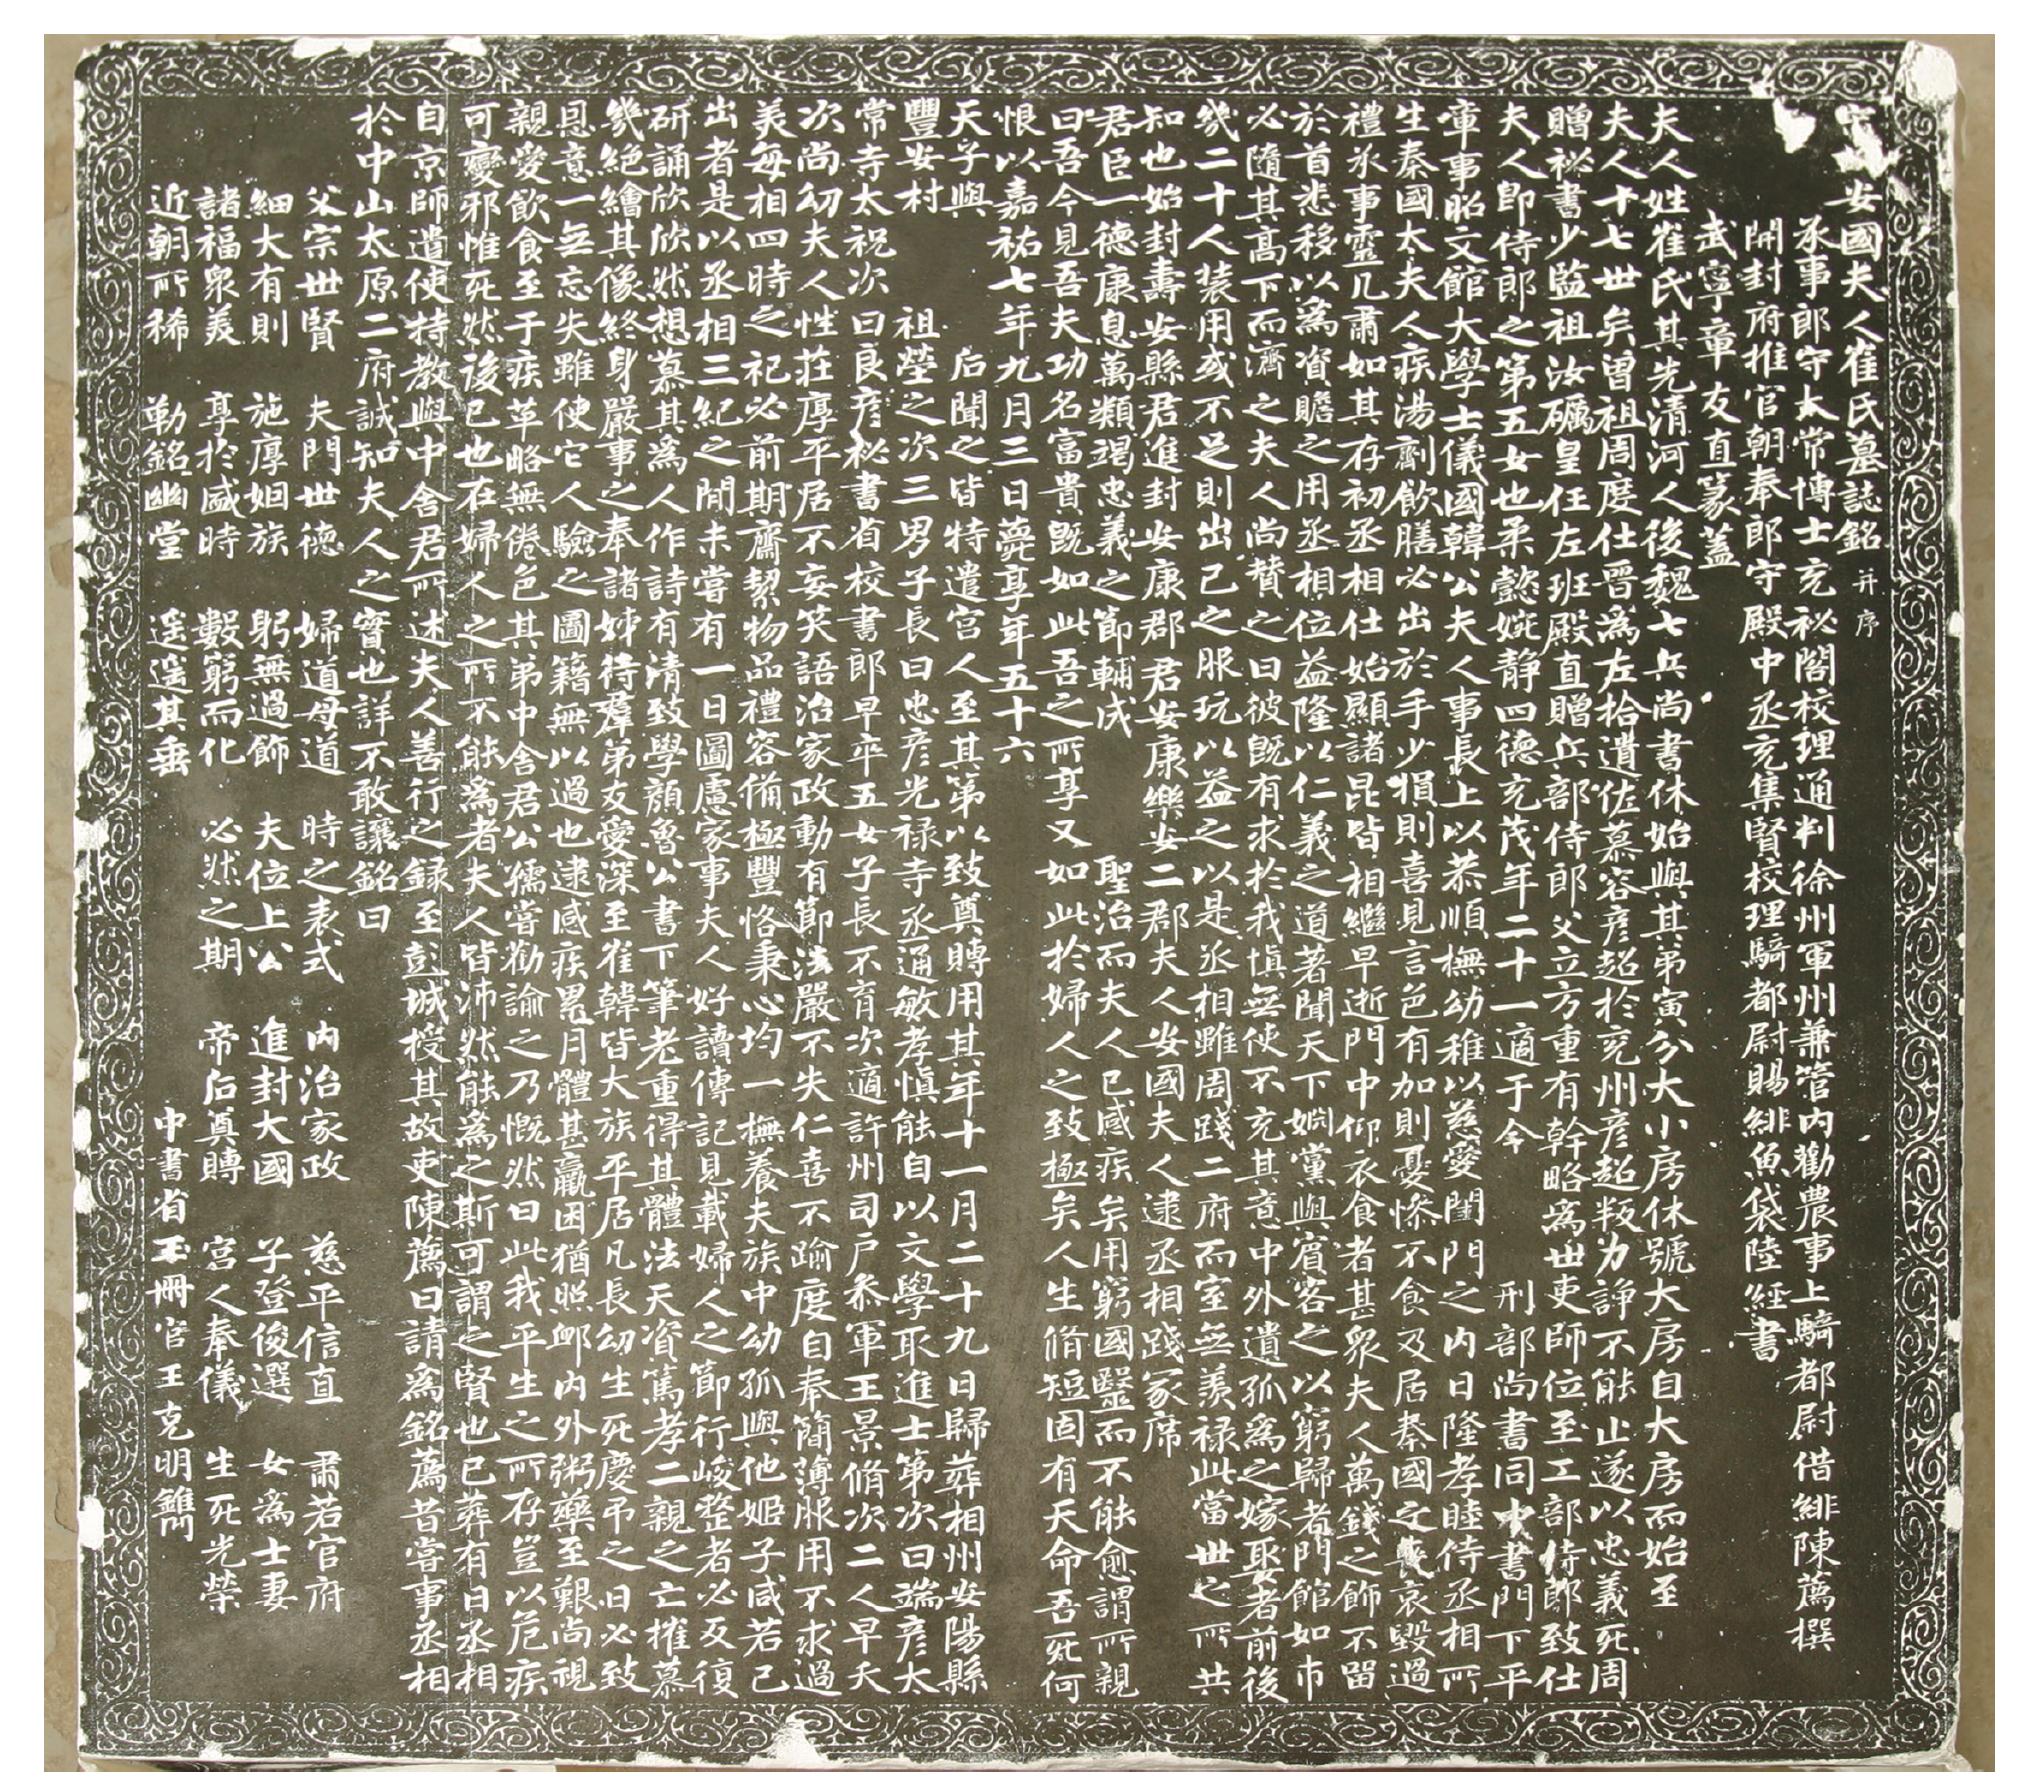 安國夫人崔氏墓誌銘 并序
承事郎守太常博士充祕閣校理通判徐州軍州兼管內勸農事上騎都尉借緋陳薦撰
開封府推官朝奉郎守殿中丞充集賢校理騎都尉賜緋魚袋陸經書
武寧章友直篆蓋
夫人姓崔氏其先清河人後魏七兵尚書休始與其弟寅分大小房休號大房自大房而始至
夫人十七世矣曾祖周度仕晉為左拾遺佐慕容彥超於兗州彥超叛力諍不能止遂以忠義死周
贈祕書少監祖汝礪皇任左班殿直贈兵部侍郎父立方重有幹略為世吏師位至工部侍郎致仕
夫人即侍郎之第五女也柔懿婉靜四德充茂年二十一適于今 刑部尚書同中書門下平
章事昭文館大學士儀國韓公夫人事長上以恭順撫幼稚以慈愛閨門之內日隆孝睦侍丞相所
生秦國太夫人疾湯劑飲膳必出於手少損則喜見言色有加則憂慘不食及居秦國之喪哀毀過
禮丞事靈几肅如其存初丞相仕始顯諸昆皆相繼早逝門中仰衣食者甚眾夫人萬錢之飾不留
於首悉移以為資贍之用丞相位益隆以仁義之道著聞天下姻黨與賓客之以窮歸者門館如市
必隨其高下而濟之夫人尚贊之曰彼既有求於我慎無使不充其意中外遺孤為之嫁娶者前後
幾二十人裝用或不足則出己之服玩以益之以是丞相雖周踐二府而室無羨祿此當世之所共
知也始封壽安縣君進封安康郡君安康樂安二郡夫人安國夫人逮丞相踐冢席
君臣一德康息萬類竭忠義之節輔成 聖治而夫人已感疾矣用窮國醫而不能愈謂所親
曰吾今見吾夫功名富貴既如此吾之所享又如此於婦人之致極矣人生脩短固有天命吾死何
恨以嘉祐七年九月三日薨享年五十六
天子與 后聞之皆特遣宮人至其第以致奠賻用其年十一月二十九日歸葬相州安陽縣
豐安村 祖塋之次三男子長曰忠彥光祿寺丞通敏孝慎能自以文學取進士第次曰端彥太
常寺太祝次曰良彥祕書省校書郎早卒五女子長不育次適許州司戶叅軍王景脩次二人早夭
次尚幼夫人性莊厚平居不妄笑語治家政動有節法嚴不失仁喜不踰度自奉簡薄服用不求過
美每相四時之祀必前期齋絜物品禮容備極豐恪秉心均一撫養夫族中幼孤與他姬子咸若己
出者是以丞相三紀之間未嘗有一日圖慮家事夫人好讀傳記見載婦人之節行峻整者必反復
研誦欣欣然想慕其為人作詩有清致學顏魯公書下筆老重得其體法天資篤孝二親之亡摧慕
幾絕繪其像終身嚴事之奉諸姊待羣弟友愛深至崔韓皆大族平居凡長幼生死慶弔之日必致
恩意一無忘失雖使它人驗之圖籍無以過也逮感疾累月體甚羸困猶照卹內外粥藥至艱尚視
親愛飲食至于疾革略無倦色其弟中舍君公孺嘗勸諭之乃慨然曰此我平生之所存豈以危疾
可變邪惟死然後已也在婦人之所不能為者夫人皆沛然能為之斯可謂之賢也已葬有日丞相
自京師遣使特教與中舍君所述夫人善行之錄至彭城授其故吏陳薦曰請為銘薦昔嘗事丞相
於中山太原二府誠知夫人之實也詳不敢讓銘曰
父宗世賢 夫門世德 婦道母道 時之表式 內治家政 慈平信直 肅若官府
細大有則 施厚姻族 躬無過飾 夫位上公 進封大國 子登俊選 女為士妻
諸福衆美 享於盛時 數窮而化 必然之期 帝后奠賻 宮人奉儀 生死光榮
近朝所稀 勒銘幽堂 遥遥其垂
中書省玉冊官王克明鐫